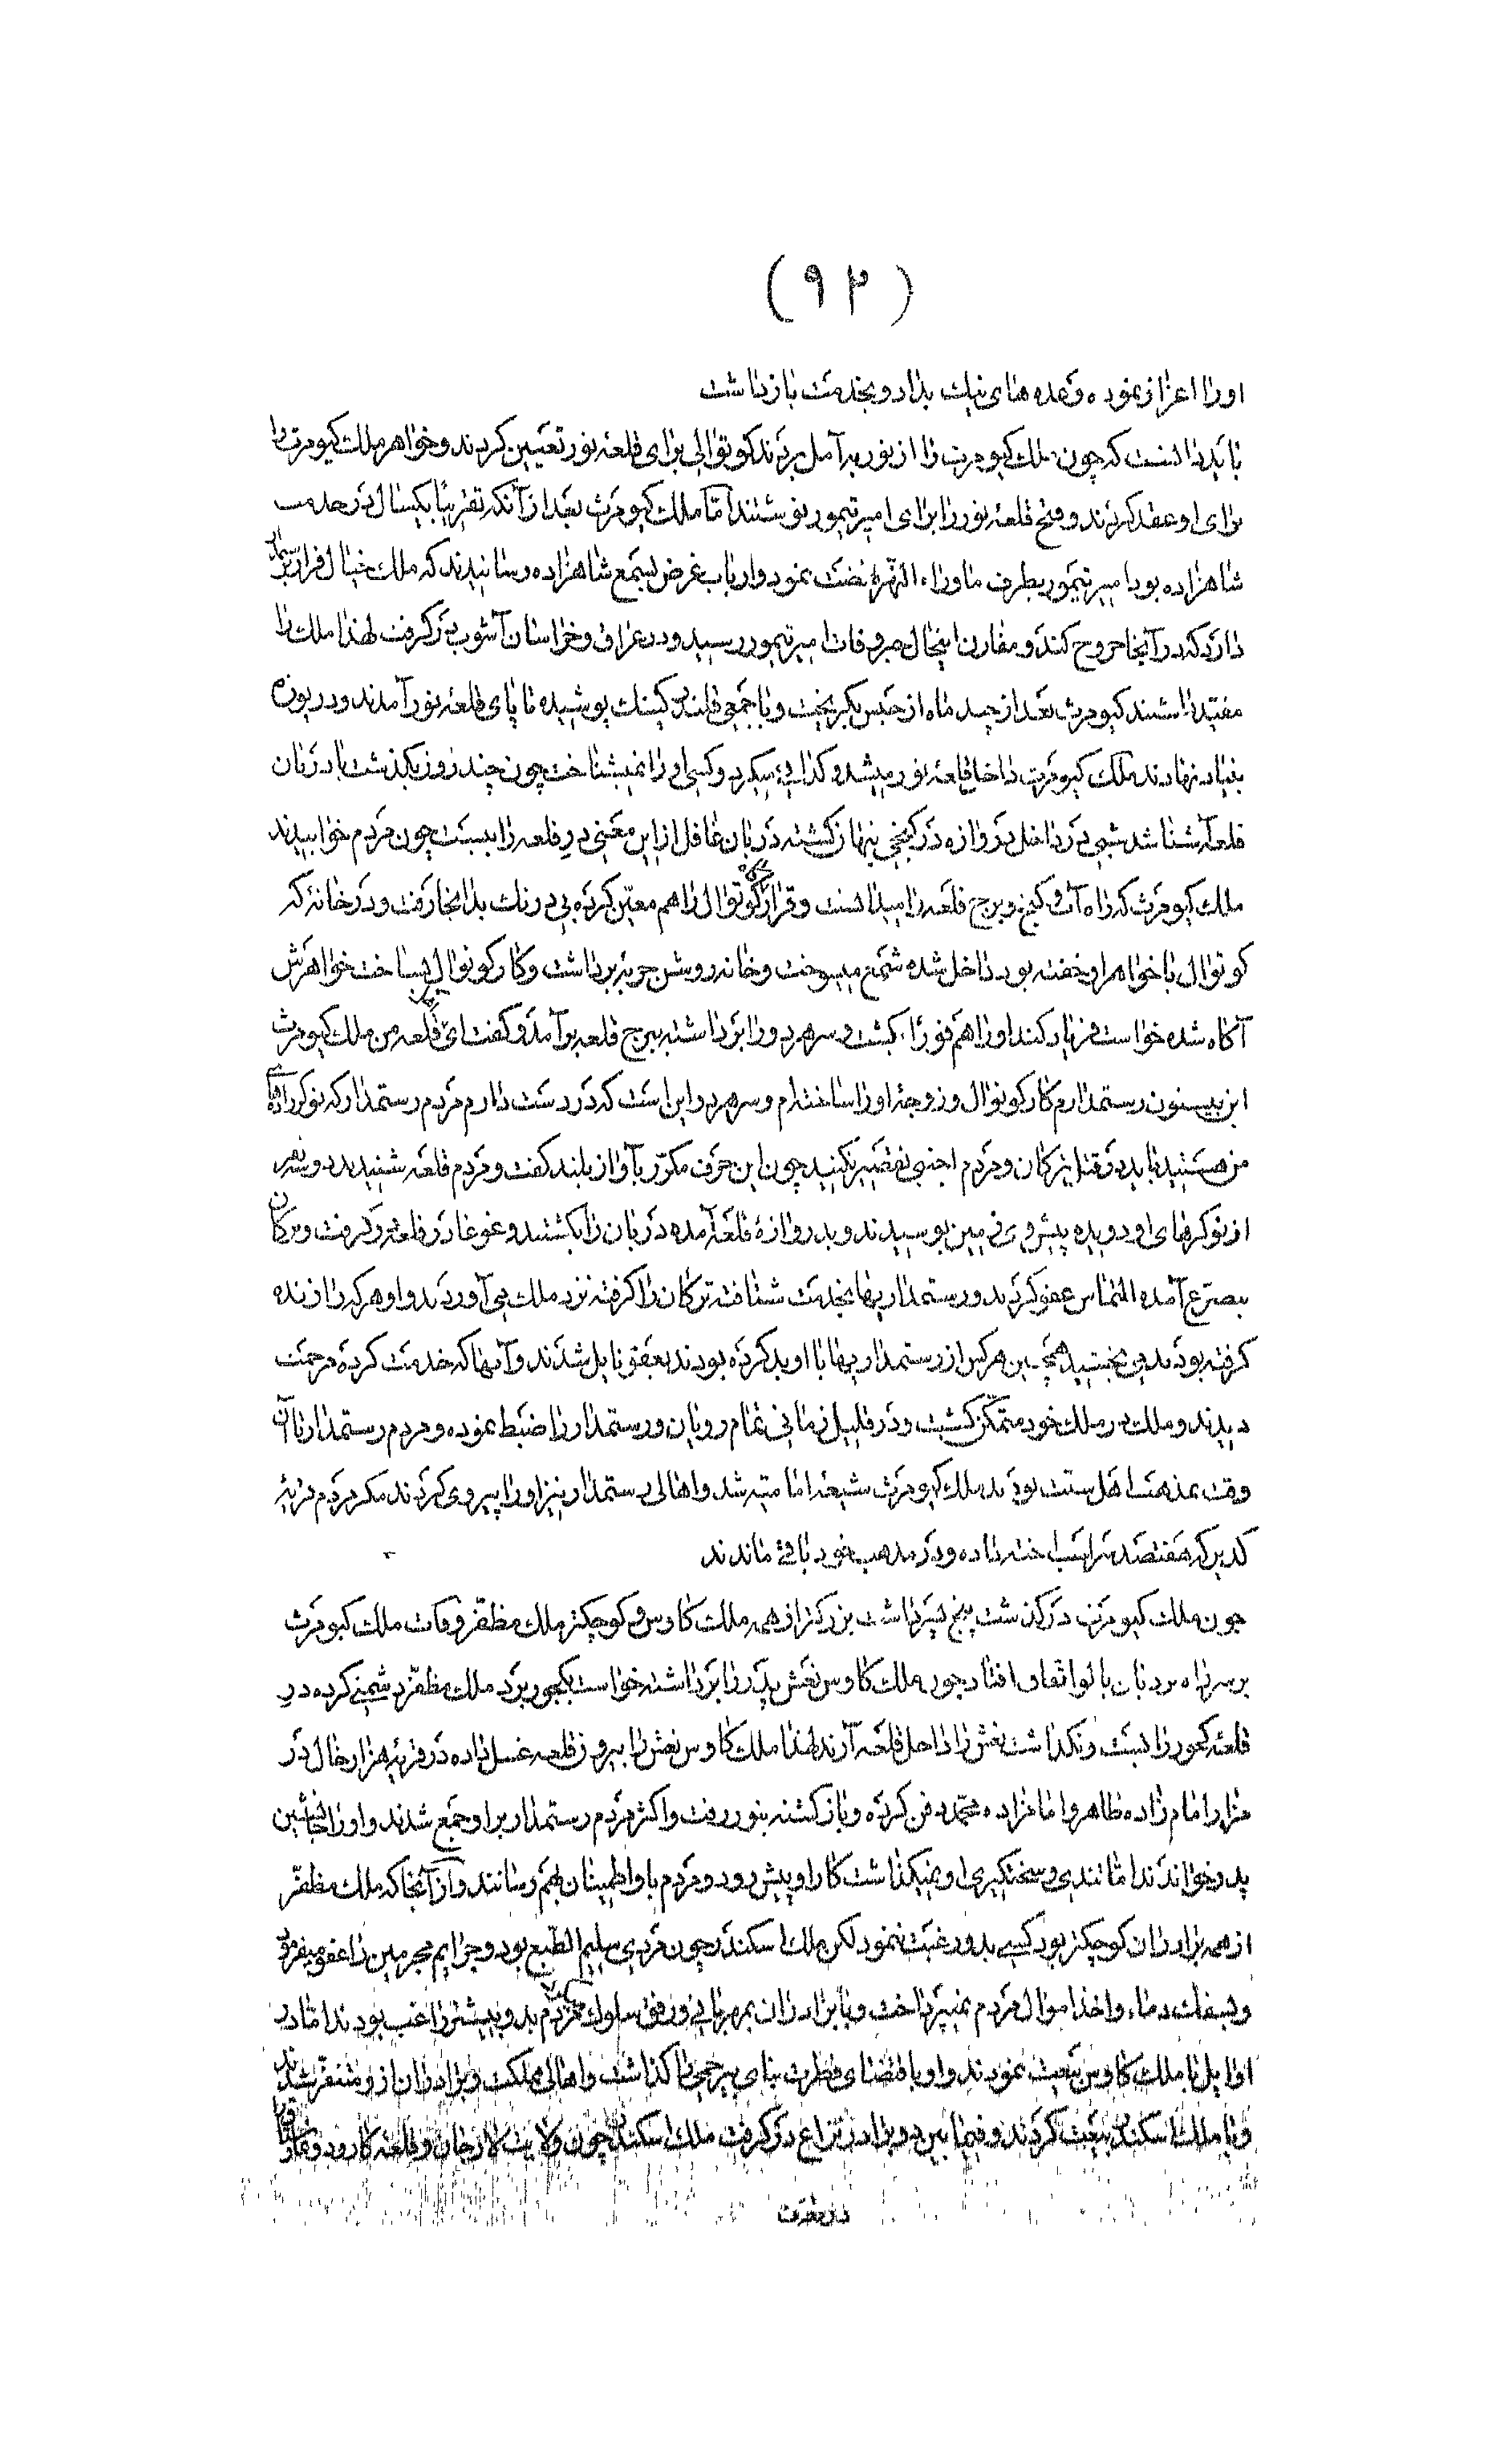 (۹۳)
اورا اعزاز نموده وعده های نیك بداد و بخدمت بازداشت
باید دانست که چون ملك کیومرث را از نور به آمل بردند کوتوالی برای قلعه نور تعیین کردند و خواهر ملك کیومرث را
برای او عقد کردند و فتح قلعه نور را برای امیر تیمور نوشتند اما ملك کیومرث بعد از آنکه تقریبا یکسال در خدمت
شاهزاده بود امیر تیمور بطرف ماوراء النهر نهضت نمود و ارباب غرض بسمع شاهزاده رسانیدند که ملك خیال فرار برستمدار
دارد که در آنجا خروج کند و مقارن اینحال خبر وفات امیر تیمور رسید و در عراق و خراسان آشوب در گرفت لهذا ملك را
مقید داشتند کیومرث بعد از چند ماه از حبس بگریخت و با جمعی قلندر کپنك پوشیده تا پای قلعه نور آمدند و دریوزه
بنیاد نهادند ملك کیومرث داخل قلعه نور میشد و گدائی میکرد و کسی او را نمیشناخت چون چند روز بگذشت با دربان
قلعه آشنا شد شبی در داخل دروازه در کنجی پنهان گشته دربان غافل از این معنی در قلعه را ببست چون مردم خوابیدند
ملك کیومرث که راه آن و کنج و برج قلعه را میدانست و قرارگاه کوتوال را هم معین کرده بی درنك بدانجا رفت و در خانه که
کوتوال با خواهر او خفته بود داخل شده شمع میسوخت و خانه روشن حربه برداشت و کار کوتوال بساخت خواهرش
آگاه شده خواست فریاد کند او را هم فورا بکشت و سر هر دو را برداشته ببرج قلعه برآمد و گفت ای اهل قلعه من ملك کیومرث
ابن بیستون رستمدارم کار کوتوال و زوجه او را ساخته ام و سر هر دو این است که در دست دارم مردم رستمدار که نوکرزاده های
من هستید باید در قتل ترکان و مردم اجنبی تقصیر نکنید چون این حرف مکرر با آواز بلند گفت و مردم قلعه شنیدند دو سه نفر
از نوکرهای او دویده پیش وی زمین بوسیدند و بدروازه قلعه آمده دربان را بکشتند و غوغا در قلعه در گرفت و ترکان
بتضرع آمده التماس عفو کردند و رستمداریها بخدمت شتافته ترکان را گرفته نزد ملك می آوردند و او هر که را زنده
گرفته بودند می بخشید همچنین هر کس از رستمداریها با او بد کرده بودند بعفو نایل شدند و آنها که خدمت کرده مرحمت
دیدند و ملك در ملك خود متمکن گشت و در قلیل زمانی تمام رویان و رستمدار را ضبط نموده و مردم رستمدار تا آن
وقت بمذهب اهل سنت بودند ملك کیومرث شیعه امامیه شد و اهالی رستمدار نیز او را پیروی کردند مگر مردم قریه
کدیر که هفتصد سر اسب اخته داده و در مذهب خود باقی ماندند
چون ملك کیومرث در گذشت پنج پسر داشت بزرگتر از همه ملك کاوس و کوچکتر ملك مظفر وفات ملك کیومرث
بر سر راه بردبان بالو اتفاق افتاد چون ملك کاوس نعش پدر را برداشته خواست بکجور برد ملك مظفر دشمنی کرده در
قلعه کجور را ببست و نگذاشت نعش را داخل قلعه آرند لهذا ملك کاوس نعش را بیرون قلعه غسل داده در قریه هزارخال در
مزار امام زاده طاهر و امامزاده محمد دفن کرده و باز گشته بنور رفت و اکثر مردم رستمدار بر او جمع شدند و او را جانشین
پدر خواندند اما تندی و سختگیری او نمیگذاشت کار او پیش رود و مردم باو اطمینان بهم رسانند و از آنجا که ملك مظفر
از همه برادران کوچکتر بود کسی بدو رغبت ننمود لکن ملك اسکندر چون مردی سلیم الطبع بود و جرایم مجرمین را عفو میفرمود
و بسفك دماء و اخذ اموال مردم نمیپرداخت و با برادران بمهربانی و رفق سلوك میکرد مردم بدو بیشتر راغب بودند اما در
اوایل با ملك کاوس بیعت نمودند و او باقتضای فطرت بنای بیرحمی را گذاشت و اهالی مملکت و برادران از و متنفر شدند
و با ملك اسکندر بیعت کردند و فیمابین دو برادر نزاع در گرفت ملك اسکندر چون ولایت لارجان و قلعه کارود و